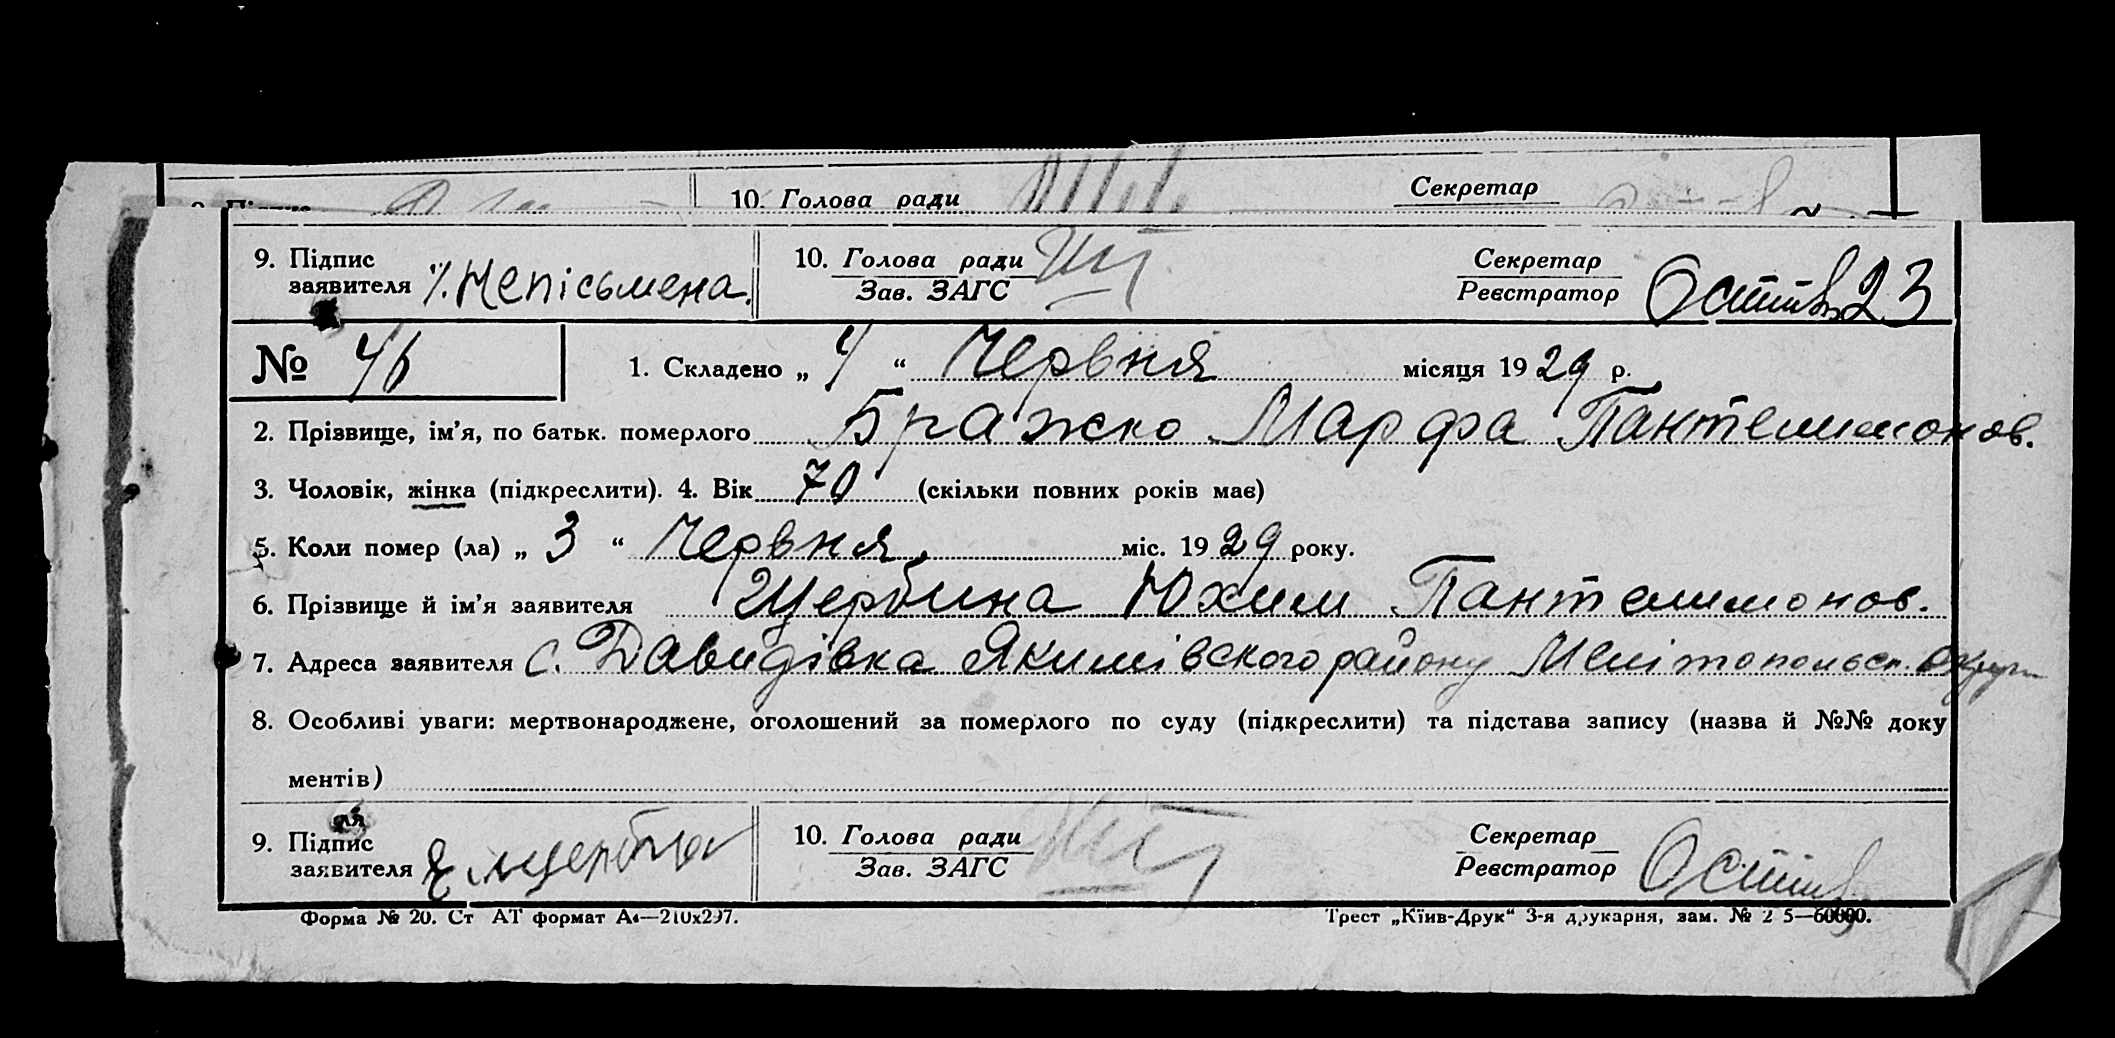 10. Голова ради Секретар
9. Підпис заявителя Непісьмена. 10. Голова ради Зав. ЗАГС Секретар Реєстратор 23
№ 46 1. Складено „ 4 “ Червня місяця 1929 р.
2. Прізвище, ім’я, по батьк. померлого Бражко Марфа Пантелимонов.
3. Чоловік, жінка (підкреслити). 4. Вік 70 (скільки повних років має)
5. Коли помер (ла) „ 3 “ Червня міс. 1929 року.
6. Прізвище й ім’я заявителя Щербина Юхим Пантелимонов.
7. Адреса заявителя с. Давидівка Якимівского району Мелітопольск. округи
8. Особливі уваги: мертвонароджене, оголошений за померлого по суду (підкреслити) та підстава запису (назва й №№ доку
ментів)
9. Підпис заявителя 10. Голова ради Зав. ЗАГС Секретар Реєстратор
Форма № 20. Ст АТ формат А4—210х297. Трест „Київ-Друк“ 3-я друкарня, зам. №